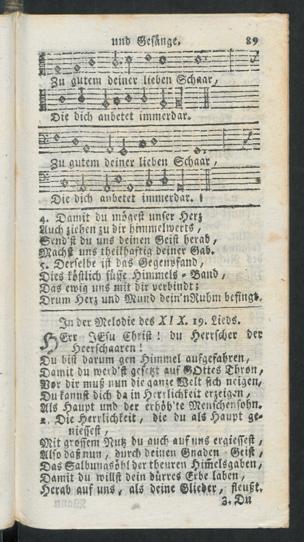 und Gesänge. 89
Zu gutem deiner lieben Schaar,
Die dich anbetet immerdar.
Zu gutem deiner lieben Schaar,
Die dich anbetet immerdar.
4. Damit du mögest unser Herz
Auch ziehen zu dir himmelwerts,
Send'st du uns deinen Geist herab,
Machst uns theilhaftig deiner Gab.
5. Derselbe ist das Gegenpfand,
Dies köstlich süsse Himmels-Band,
Das ewig uns mit dir verbindt;
Drum Herz und Mund dein'n Ruhm besingt.
In der Melodie des XIX. 19. Lieds.
HErr JEsu Christ! du Herrscher der
Heerschaaren!
Du bist darum gen Himmel aufgefahren,
Damit du werd'st gesetzt auf GOttes Thron,
Vor dir muß nun die ganze Welt sich neigen,
Du kannst dich da in Herrlichkeit erzeigen,
Als Haupt und der erhöh'te Menschensohn.
2. Die Herrlichkeit, die du als Haupt ge-
niessest,
Mit grossem Nutz du auch auf uns ergiessest
Also daß nun, durch deinen Gnaden-Geist,
Das Salbungsöhl der theuren Him̃elsgaben,
Damit du willst dein dürres Erbe laben,
Herab auf uns, als deine Glieder, fleußt.
3. Du